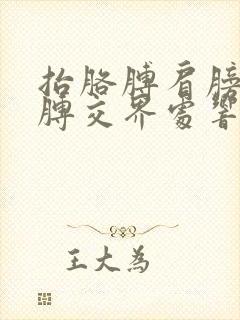 抬胳膊肩膀
膊交界處響
王大為